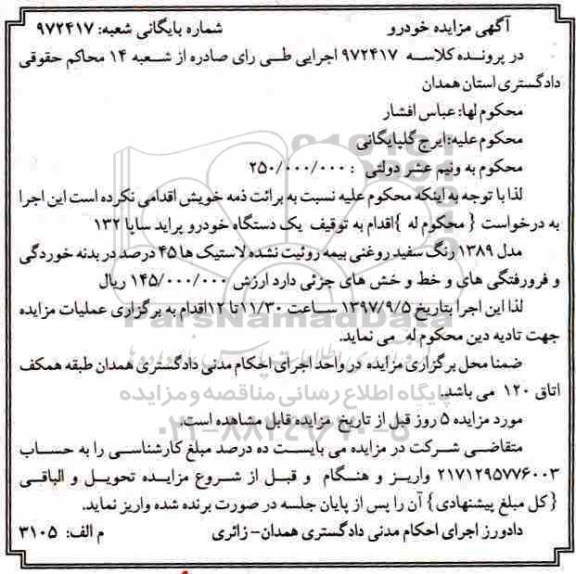 آگهی مزایده خودرو شماره بایگانی شعبه: ۹۷۲۴۱۷
در پرونده کلاسه ۹۷۲۴۱۷ اجرایی طی رای صادره از شعبه ۱۴ محاکم حقوقی
دادگستری استان همدان
محکوم لها: عباس افشار
محکوم علیه: ایرج گلپایگانی
محکوم به ونیم عشر دولتی : ۲۵۰/۰۰۰/۰۰۰
لذا با توجه به اینکه محکوم علیه نسبت به برائت ذمه خویش اقدامی نکرده است این اجرا
به درخواست { محکوم له }اقدام به توقیف یک دستگاه خودرو پراید سایا ۱۳۲
مدل ۱۳۸۹ رنگ سفید روغنی بیمه روئیت نشده لاستیک ها ۴۵ درصد در بدنه خوردگی
و فرورفتگی های و خط و خش های جزئی دارد ارزش ۱۴۵/۰۰۰/۰۰۰ ریال
لذا این اجرا بتاریخ ۱۳۹۷/۹/۵ ساعت ۱۱/۳۰ تا ۱۲اقدام به برگزاری عملیات مزایده
جهت تادیه دین محکوم له می نماید.
ضمنا محل برگزاری مزایده در واحد اجرای احکام مدنی دادگستری همدان طبقه همکف
اتاق ۱۲۰ می باشد.
پایگاه اطلاع رسانی مناقصه و مزایده
مورد مزایده ۵ روز قبل از تاریخ مزایده قابل مشاهده است.
متقاضی شرکت در مزایده می بایست ده درصد مبلغ کارشناسی را به حساب
۲۱۷۱۲۹۵۷۷۶۰۰۳ واریز و هنگام و قبل از شروع مزایده تحویل و الباقی
{کل مبلغ پیشنهادی} آن را پس از پایان جلسه در صورت برنده شده واریز نماید.
دادورز اجرای احکام مدنی دادگستری همدان- زائری م الف: ۳۱۰۵